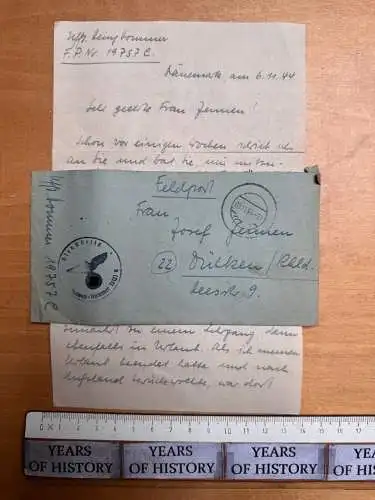 Uffz. Bommer
F.P.Nr. 19757 C.
Dänemark am 6.11.44
Sehr geehrte Frau Jennen!
Schon vor einigen Wochen schrieb ich
an Sie und bat Sie mir
Feldpost
Frau
Josef Jennen
(22) Dülken/Rhld.
Uffz Bommer 19757 C
zu einem Lehrgang dann
ebenfalls in Urlaub. Als ich meinen
Urlaub beendet hatte und nach
zurückwollte, war dort
0 1 2 3 4 5 6 7 8 9 10 11 12 13 14 15 16 17
YEARS
OF HISTORY
YEARS
OF HISTORY
YEARS
OF HISTORY
YEARS
OF HISTORY